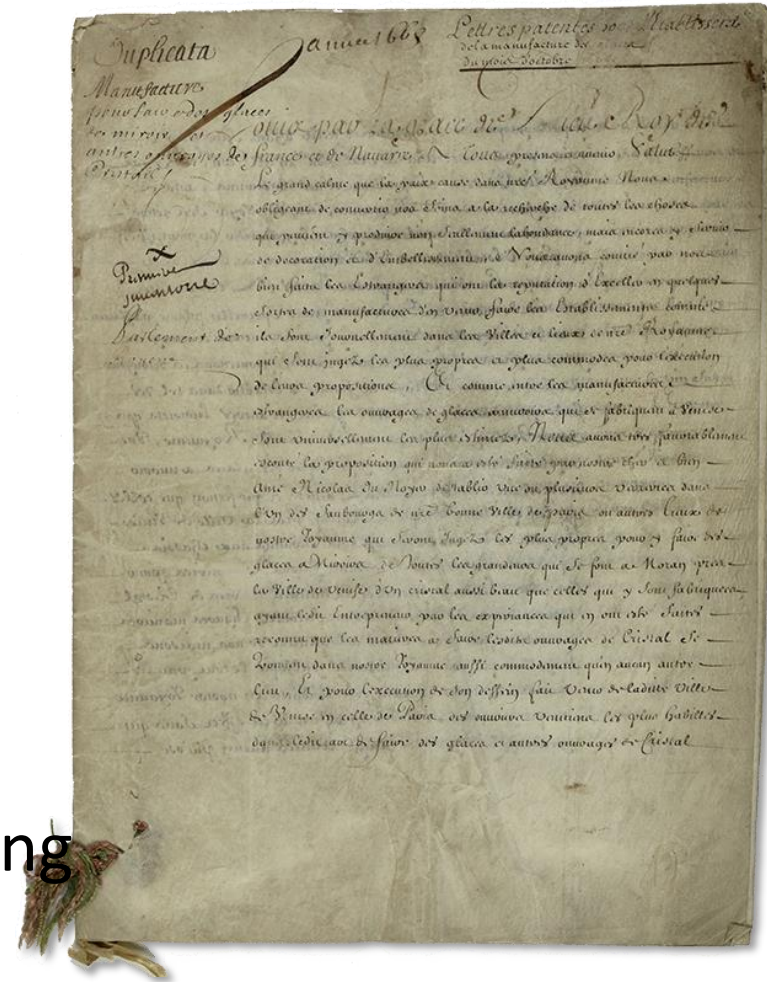 Duplicata
Année 1665
Lettres patentes pour l'Etablissement
de la manufacture des glaces
du mois d'octobre
Manufacture
pour faire des glaces
de miroir et
autres ouvrages de
Cristail
Louis par la grace de Dieu Roy de
france et de Navarre, A tous presens et auenir Salut
Le grand calme que la paix cause dans nre Royaume Nous
obligeant de conuertir nos soins a la recherche de toutes les choses
qui peuuent y produire non seullement labondance, mais encores y seruir
de decoration et d'Embellissement, Nous auons conuié par nos
bien faits les Estrangers qui ont la reputation d'Exceller en quelques
sortes de manufactures d'en venir faire les Establissements comme
ils font Journellement dans les Villes et lieux de nre Royaume
qui sont jugez les plus propres et plus commodes pour l'execution
de leurs propositions, Et comme entre les manufactures
estrangeres les ouurages de glaces a miroirs qui se fabriquent a Venise
sont vniuersellement les plus estimez, Nous auons tres fauorablement
escouté la proposition qui nous a esté faite par nostre cher et bien
amé Nicolas Du Noyer d'establir vne ou plusieurs verreries dans
l'Vn des faubourgs de nre bonne Ville de paris ou autres lieux de
nostre Royaume qui seront Jugez les plus propres pour y faire des
glaces a Miroirs de Toutes les grandeurs qui se font a Moran pres
la Ville de Venise d'Vn cristal aussi beau que celles qui y sont fabriquees
ayant ledit Entrepreneur par les experiances qui en ont esté faites
reconnu que les matieres a faire lesdits ouurages de Cristal se
trouuent dans nostre Royaume aussi commodement qu'en aucun autre
lieu, Et pour l'execution de son dessein fait venir de ladite Ville
de Venise en celle de Paris des ouuriers Venitiens les plus habilles
dans ledit art de faire des glaces et autres ouurages de Cristal
Premiere
Parlement de
ng